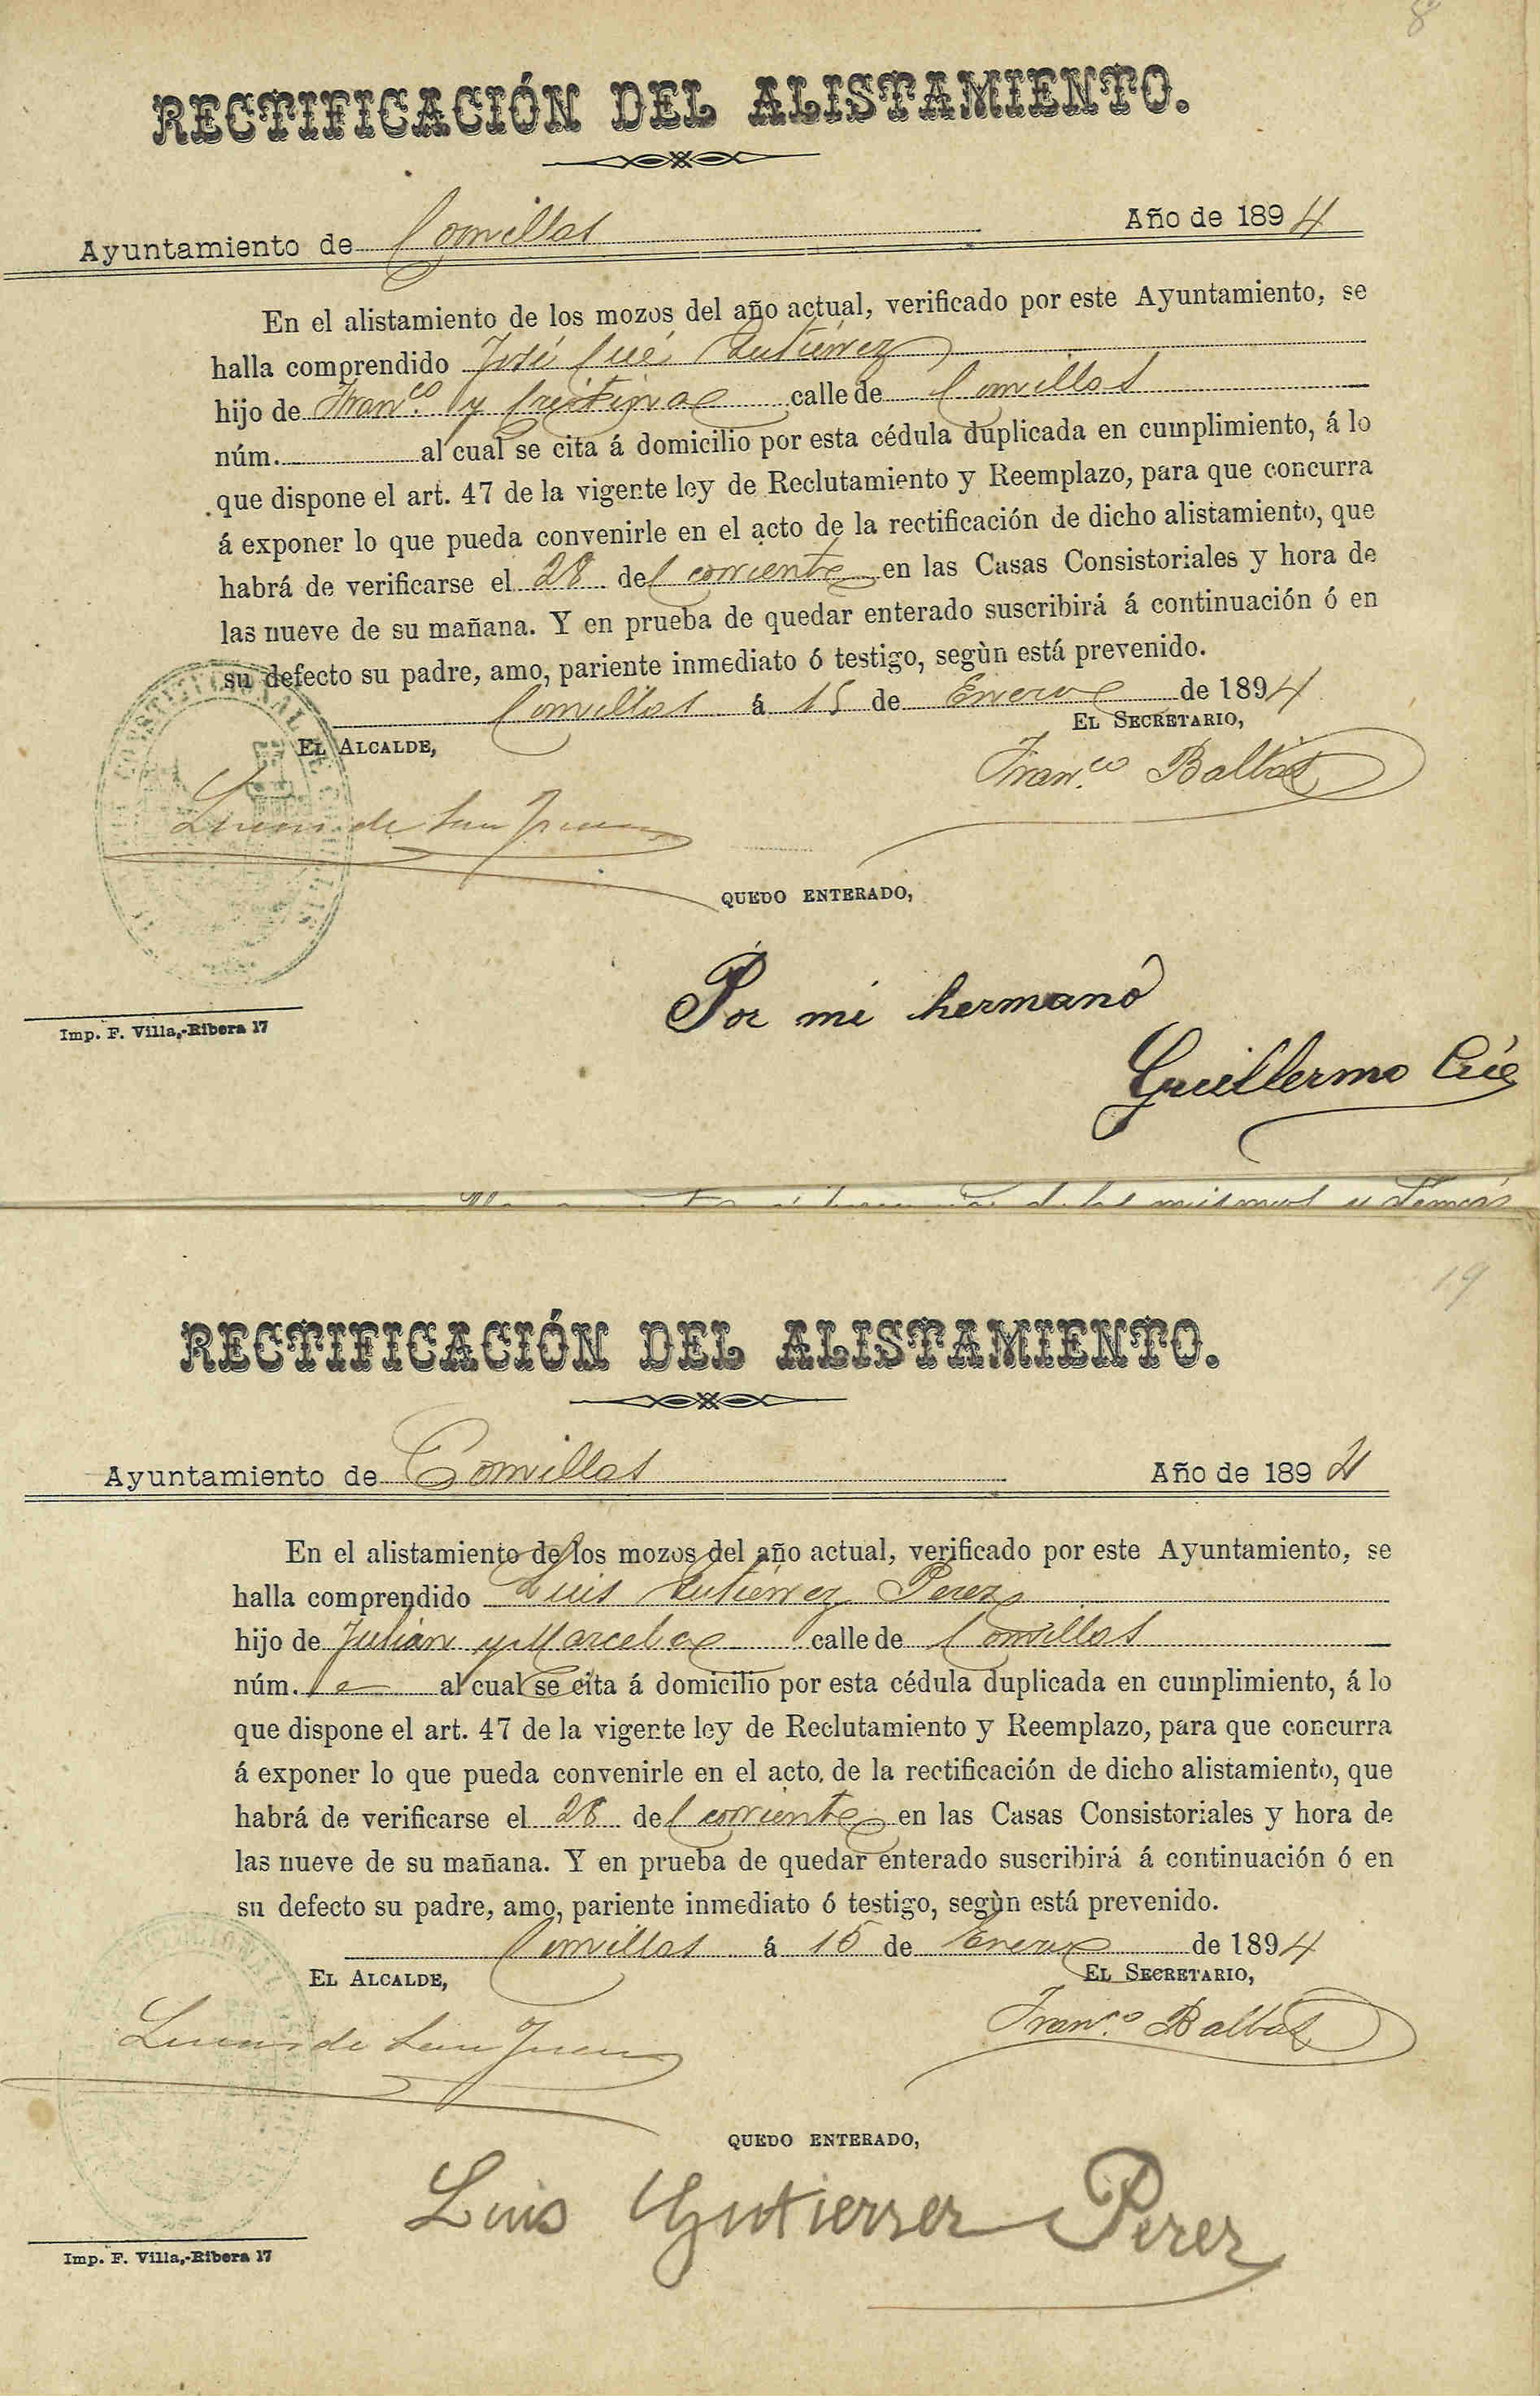 8
RECTIFICACIÓN DEL ALISTAMIENTO.
Ayuntamiento de Comillas Año de 1894
En el alistamiento de los mozos del año actual, verificado por este Ayuntamiento, se
halla comprendido José Cué Gutiérrez
hijo de Fran.co y Cristina calle de Comillas
núm. al cual se cita á domicilio por esta cédula duplicada en cumplimiento, á lo
que dispone el art. 47 de la vigente ley de Reclutamiento y Reemplazo, para que concurra
á exponer lo que pueda convenirle en el acto de la rectificación de dicho alistamiento, que
habrá de verificarse el 28 del corriente en las Casas Consistoriales y hora de
las nueve de su mañana. Y en prueba de quedar enterado suscribirá á continuación ó en
su defecto su padre, amo, pariente inmediato ó testigo, segùn está prevenido.
Comillas á 15 de Enero de 1894
EL ALCALDE, EL SECRETARIO,
Fran.co Balbás
Lucas de San Juan
QUEDO ENTERADO,
Por mi hermano
Guillermo Cúe
Imp. F. Villa,-Ribera 17
de los mismos y demás
19
RECTIFICACIÓN DEL ALISTAMIENTO.
Ayuntamiento de Comillas Año de 1894
En el alistamiento de los mozos del año actual, verificado por este Ayuntamiento, se
halla comprendido Luis Gutiérrez Perez
hijo de Julián y Marcela calle de Comillas
núm. al cual se cita á domicilio por esta cédula duplicada en cumplimiento, á lo
que dispone el art. 47 de la vigente ley de Reclutamiento y Reemplazo, para que concurra
á exponer lo que pueda convenirle en el acto, de la rectificación de dicho alistamiento, que
habrá de verificarse el 28 del corriente en las Casas Consistoriales y hora de
las nueve de su mañana. Y en prueba de quedar enterado suscribirá á continuación ó en
su defecto su padre, amo, pariente inmediato ó testigo, segùn está prevenido.
Comillas á 15 de Enero de 1894
EL ALCALDE, EL SECRETARIO,
Lucas de San Juan Fran.co Balbás
QUEDO ENTERADO,
Luis Gutierrez Perez
Imp. F. Villa,-Ribera 17